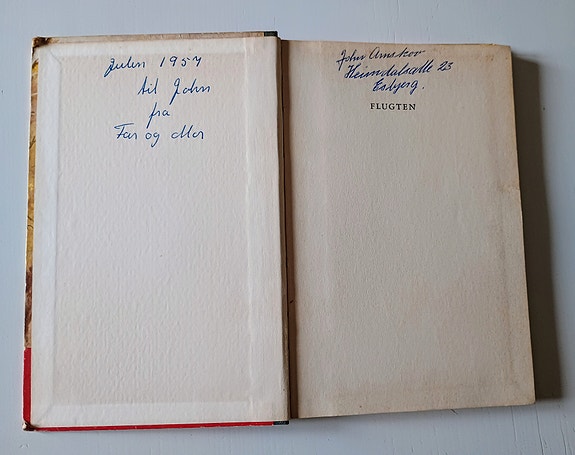 Julen 1957
til John
fra
Far og Mor
John Arnskov
Heimdalsalle 23
Esbjerg.
FLUGTEN